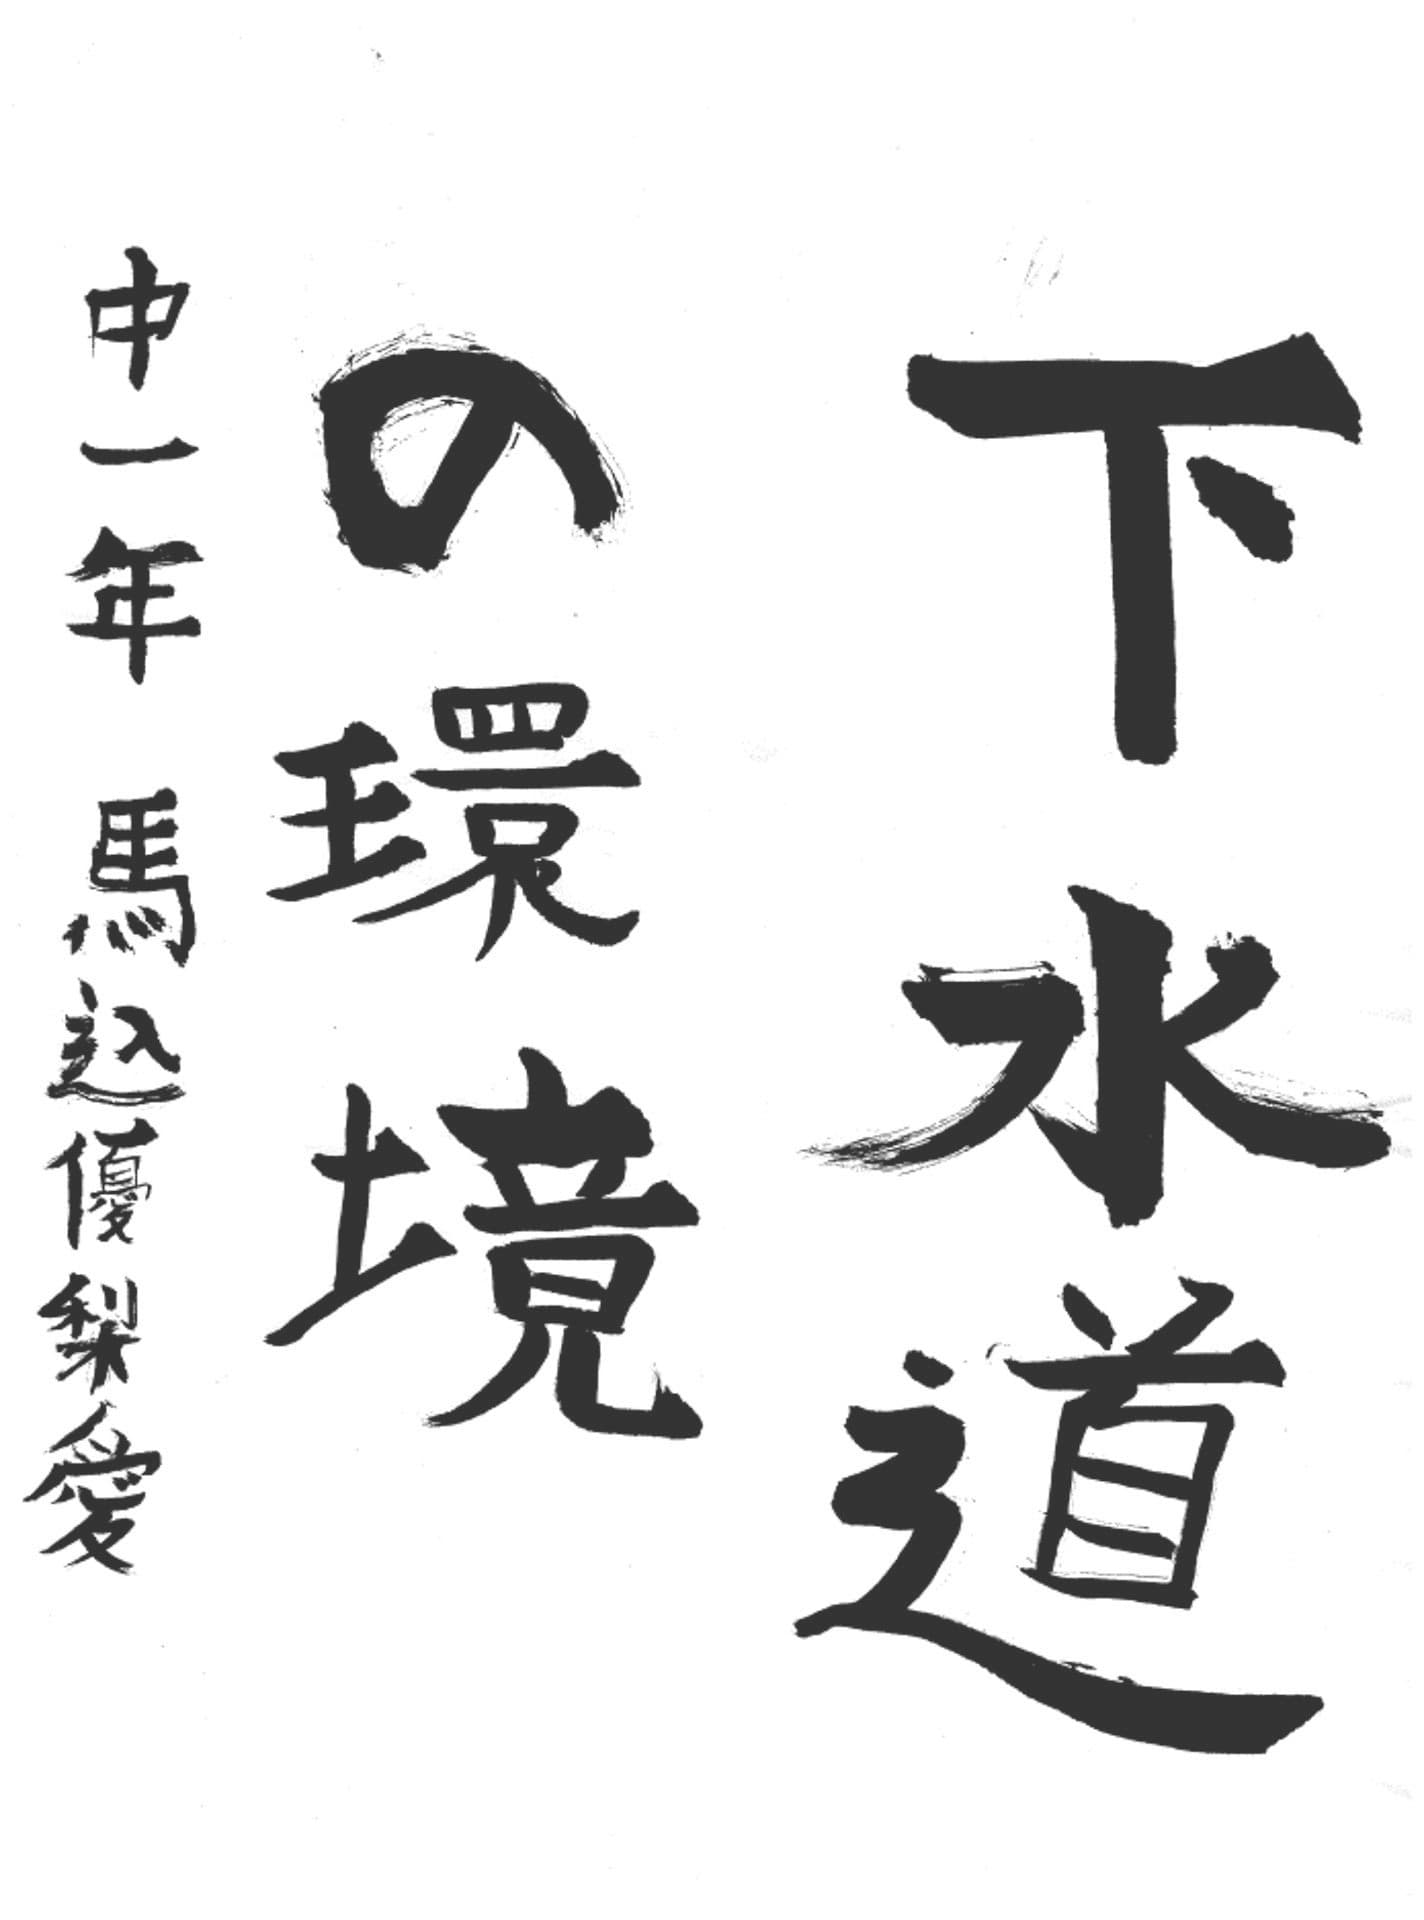 下水道
の環境
中一年 馬込優梨愛